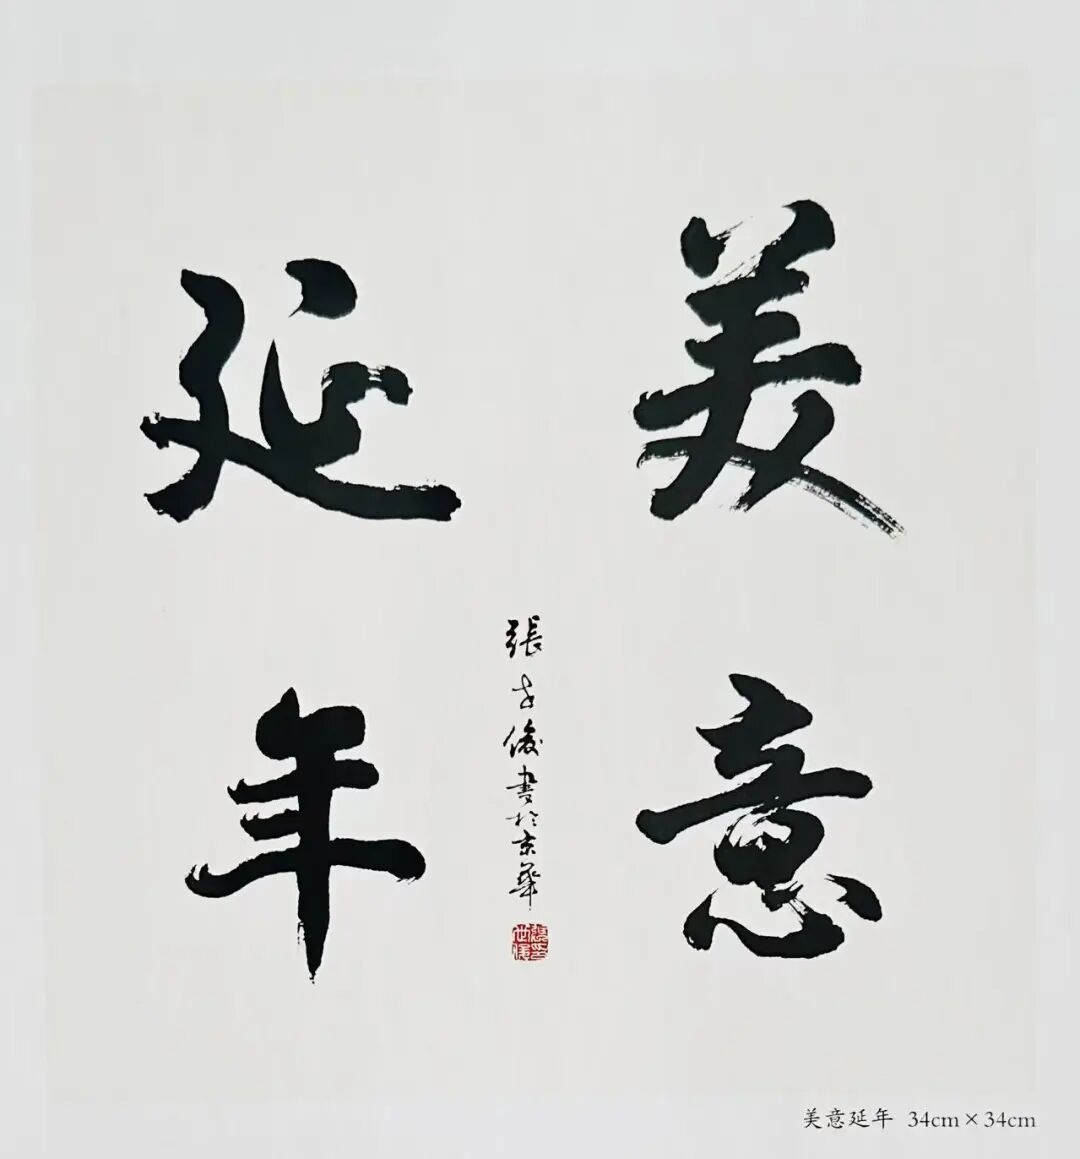 美意
延年
張世俊書於京華
美意延年 34cm×34cm